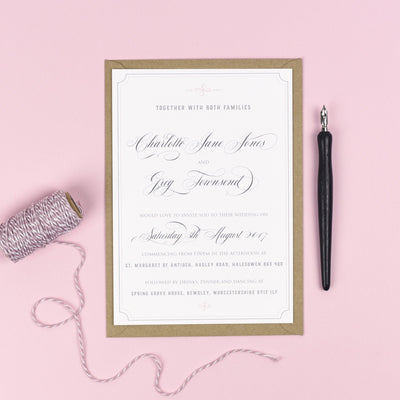 TOGETHER WITH BOTH FAMILIES
Charlotte Jane Jones
AND
Greg Townsend
WOULD LOVE TO INVITE YOU TO THEIR WEDDING ON
Saturday 5th August 2017
COMMENCING FROM 1:30PM IN THE AFTERNOON AT
ST. MARGARET OF ANTIOCH, HAGLEY ROAD, HALESOWEN B63 4QD
FOLLOWED BY DRINKS, DINNER AND DANCING AT
SPRING GROVE HOUSE, BEWDLEY, WORCESTERSHIRE DY12 1LF